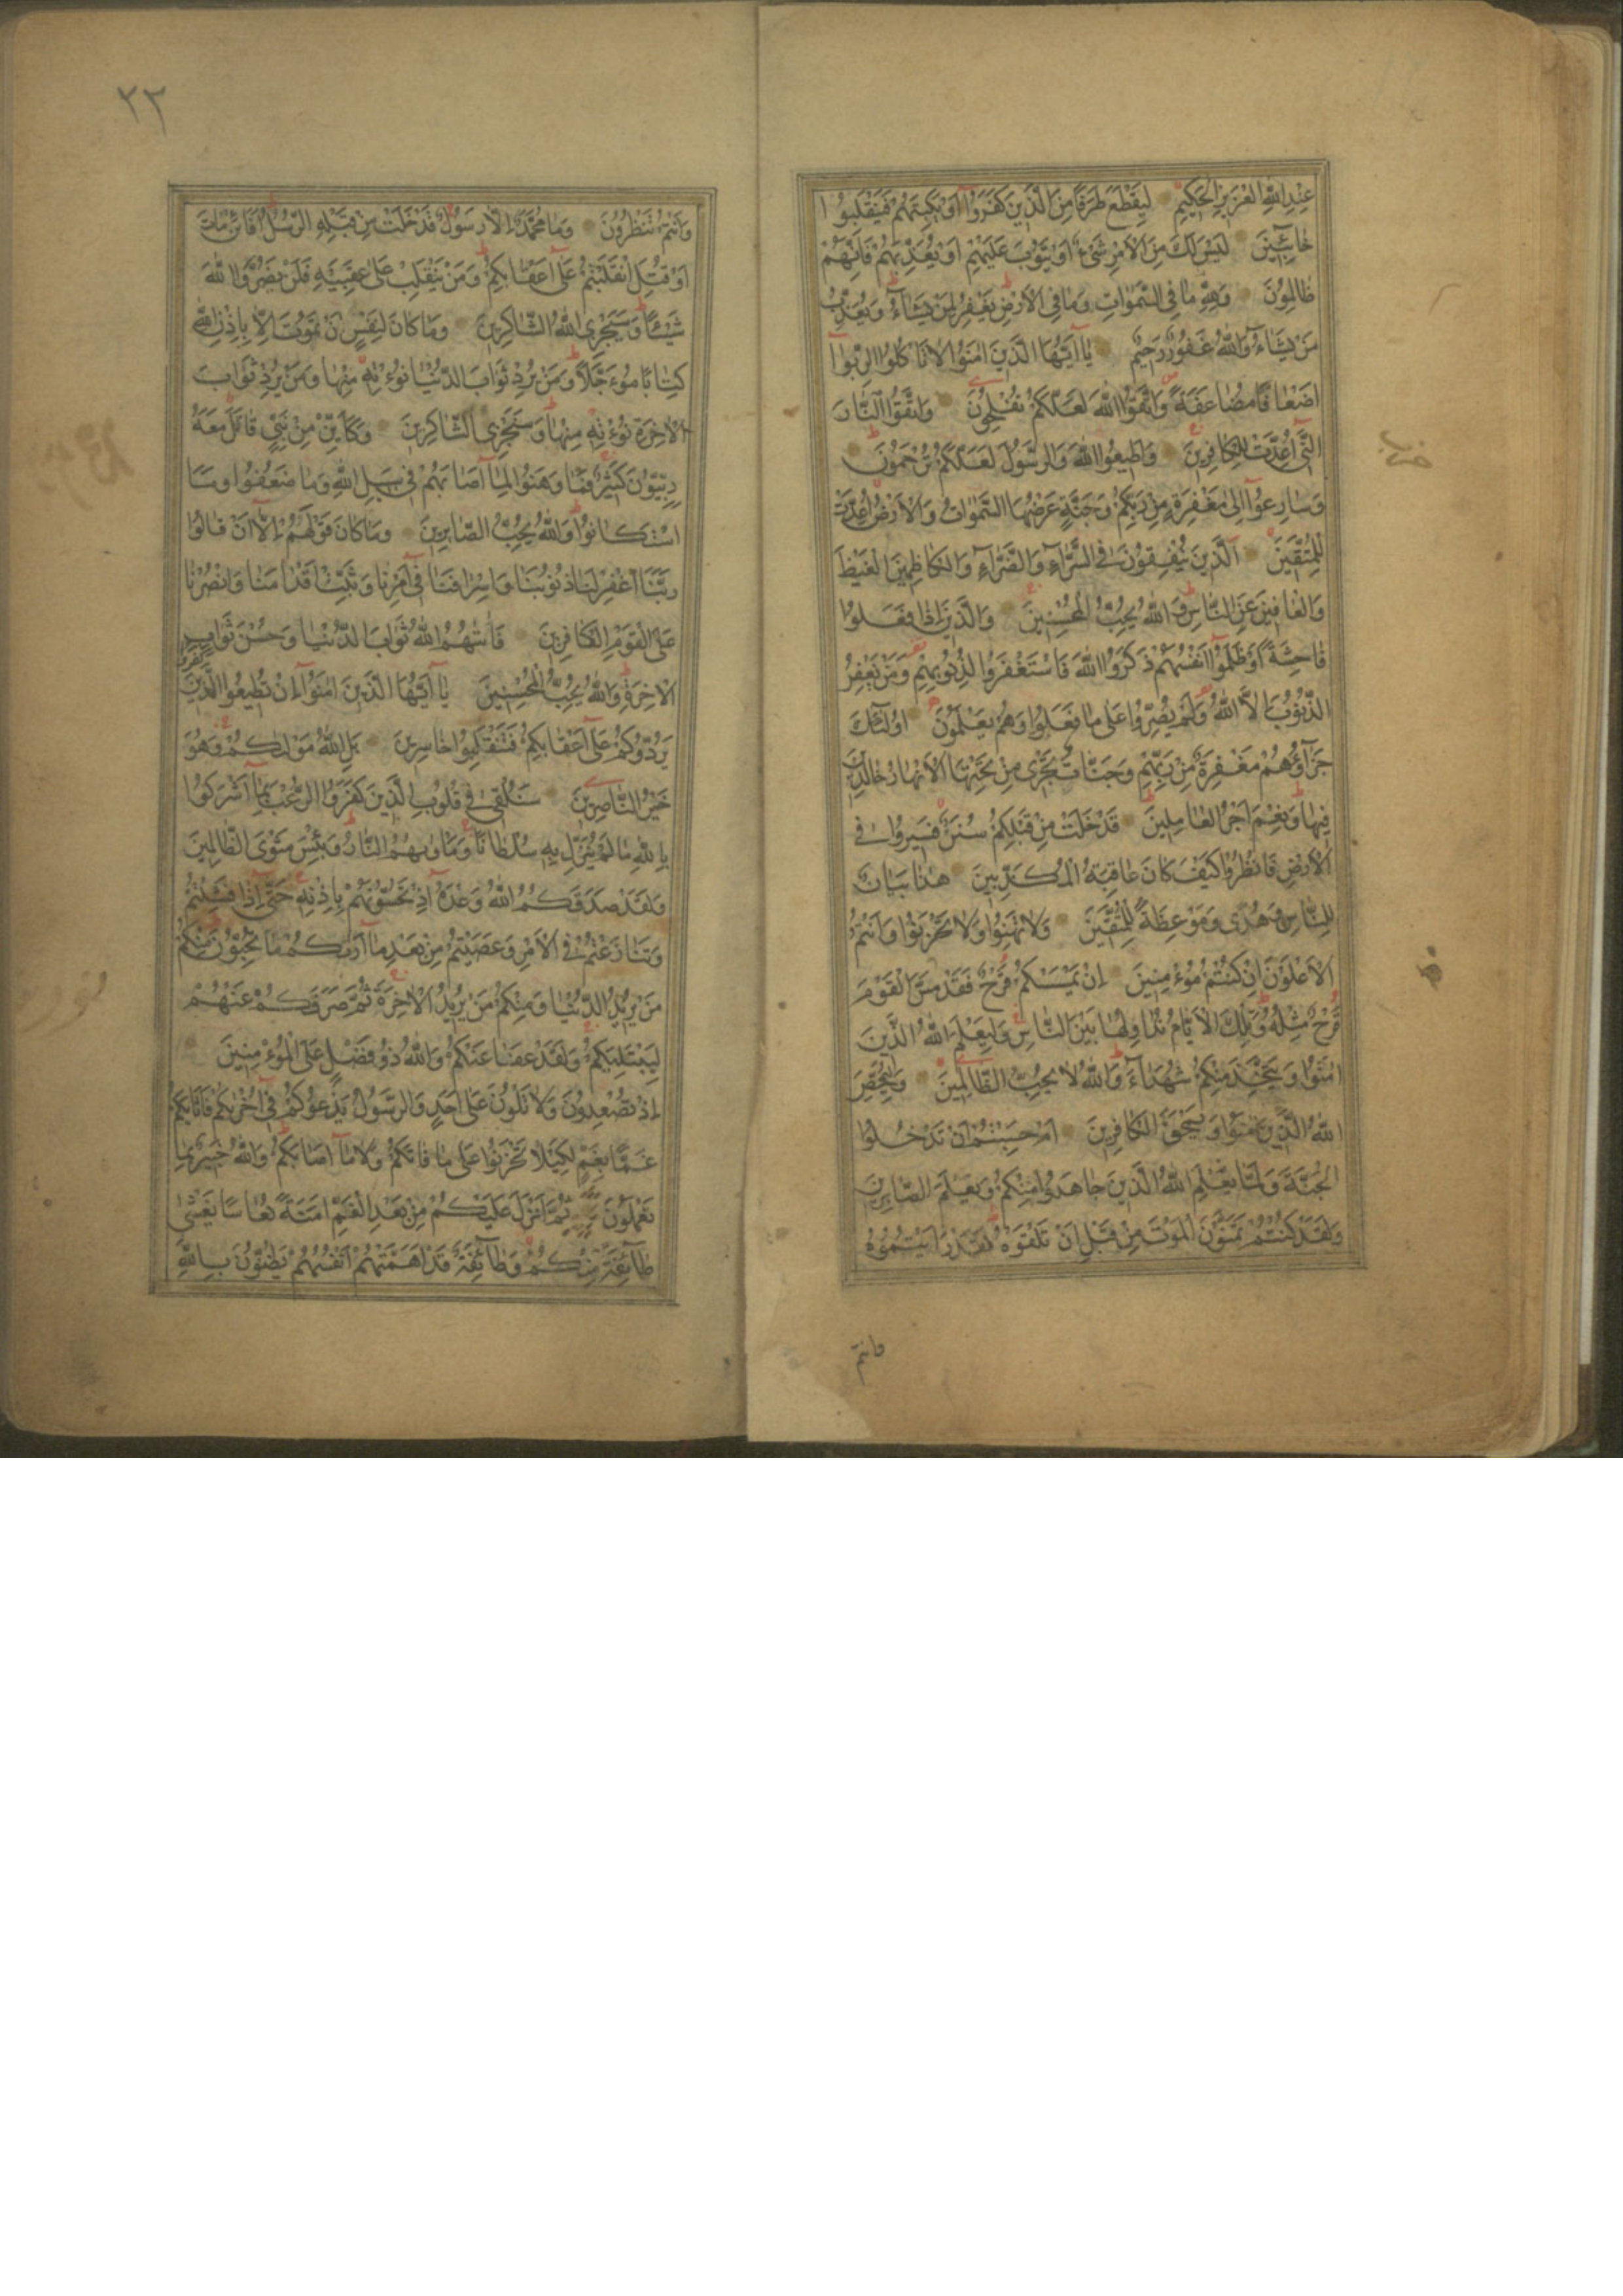 عِنْدِ اللّٰهِ الْعَزِيزِ الْحَكِيمِ لِيَقْطَعَ طَرَفًا مِنَ الَّذِينَ كَفَرُوا أَوْ يَكْبِتَهُمْ فَيَنْقَلِبُوا
خَائِبِينَ لَيْسَ لَكَ مِنَ الْأَمْرِ شَيْءٌ أَوْ يَتُوبَ عَلَيْهِمْ أَوْ يُعَذِّبَهُمْ فَإِنَّهُمْ
ظَالِمُونَ وَلِلّٰهِ مَا فِي السَّمٰوَاتِ وَمَا فِي الْأَرْضِ يَغْفِرُ لِمَنْ يَشَاءُ وَيُعَذِّبُ
مَنْ يَشَاءُ وَاللّٰهُ غَفُورٌ رَحِيمٌ يَا أَيُّهَا الَّذِينَ اٰمَنُوا لَا تَأْكُلُوا الرِّبٰوا
أَضْعَافًا مُضَاعَفَةً وَاتَّقُوا اللّٰهَ لَعَلَّكُمْ تُفْلِحُونَ وَاتَّقُوا النَّارَ
الَّتِي أُعِدَّتْ لِلْكَافِرِينَ وَأَطِيعُوا اللّٰهَ وَالرَّسُولَ لَعَلَّكُمْ تُرْحَمُونَ
وَسَارِعُوا إِلَى مَغْفِرَةٍ مِنْ رَبِّكُمْ وَجَنَّةٍ عَرْضُهَا السَّمٰوَاتُ وَالْأَرْضُ أُعِدَّتْ
لِلْمُتَّقِينَ اَلَّذِينَ يُنْفِقُونَ فِي السَّرَّاءِ وَالضَّرَّاءِ وَالْكَاظِمِينَ الْغَيْظَ
وَالْعَافِينَ عَنِ النَّاسِ وَاللّٰهُ يُحِبُّ الْمُحْسِنِينَ وَالَّذِينَ إِذَا فَعَلُوا
فَاحِشَةً أَوْ ظَلَمُوا أَنْفُسَهُمْ ذَكَرُوا اللّٰهَ فَاسْتَغْفَرُوا لِذُنُوبِهِمْ وَمَنْ يَغْفِرُ
الذُّنُوبَ إِلَّا اللّٰهُ وَلَمْ يُصِرُّوا عَلَى مَا فَعَلُوا وَهُمْ يَعْلَمُونَ أُولٰئِكَ
جَزَاؤُهُمْ مَغْفِرَةٌ مِنْ رَبِّهِمْ وَجَنَّاتٌ تَجْرِي مِنْ تَحْتِهَا الْأَنْهَارُ خَالِدِينَ
فِيهَا وَنِعْمَ أَجْرُ الْعَامِلِينَ قَدْ خَلَتْ مِنْ قَبْلِكُمْ سُنَنٌ فَسِيرُوا فِي
الْأَرْضِ فَانْظُرُوا كَيْفَ كَانَ عَاقِبَةُ الْمُكَذِّبِينَ هٰذَا بَيَانٌ
لِلنَّاسِ وَهُدًى وَمَوْعِظَةٌ لِلْمُتَّقِينَ وَلَا تَهِنُوا وَلَا تَحْزَنُوا وَأَنْتُمُ
الْأَعْلَوْنَ إِنْ كُنْتُمْ مُؤْمِنِينَ إِنْ يَمْسَسْكُمْ قَرْحٌ فَقَدْ مَسَّ الْقَوْمَ
قَرْحٌ مِثْلُهُ وَتِلْكَ الْأَيَّامُ نُدَاوِلُهَا بَيْنَ النَّاسِ وَلِيَعْلَمَ اللّٰهُ الَّذِينَ
اٰمَنُوا وَيَتَّخِذَ مِنْكُمْ شُهَدَاءَ وَاللّٰهُ لَا يُحِبُّ الظَّالِمِينَ وَلِيُمَحِّصَ
اللّٰهُ الَّذِينَ اٰمَنُوا وَيَمْحَقَ الْكَافِرِينَ أَمْ حَسِبْتُمْ أَنْ تَدْخُلُوا
الْجَنَّةَ وَلَمَّا يَعْلَمِ اللّٰهُ الَّذِينَ جَاهَدُوا مِنْكُمْ وَيَعْلَمَ الصَّابِرِينَ
وَلَقَدْ كُنْتُمْ تَمَنَّوْنَ الْمَوْتَ مِنْ قَبْلِ أَنْ تَلْقَوْهُ فَقَدْ رَأَيْتُمُوهُ
وانتم
٣٢
وَأَنْتُمْ تَنْظُرُونَ وَمَا مُحَمَّدٌ إِلَّا رَسُولٌ قَدْ خَلَتْ مِنْ قَبْلِهِ الرُّسُلُ أَفَإِنْ مَاتَ
أَوْ قُتِلَ انْقَلَبْتُمْ عَلَى أَعْقَابِكُمْ وَمَنْ يَنْقَلِبْ عَلَى عَقِبَيْهِ فَلَنْ يَضُرَّ اللّٰهَ
شَيْئًا وَسَيَجْزِي اللّٰهُ الشَّاكِرِينَ وَمَا كَانَ لِنَفْسٍ أَنْ تَمُوتَ إِلَّا بِإِذْنِ اللّٰهِ
كِتَابًا مُؤَجَّلًا وَمَنْ يُرِدْ ثَوَابَ الدُّنْيَا نُؤْتِهِ مِنْهَا وَمَنْ يُرِدْ ثَوَابَ
الْاٰخِرَةِ نُؤْتِهِ مِنْهَا وَسَنَجْزِي الشَّاكِرِينَ وَكَأَيِّنْ مِنْ نَبِيٍّ قَاتَلَ مَعَهُ
رِبِّيُّونَ كَثِيرٌ فَمَا وَهَنُوا لِمَا أَصَابَهُمْ فِي سَبِيلِ اللّٰهِ وَمَا ضَعُفُوا وَمَا
اسْتَكَانُوا وَاللّٰهُ يُحِبُّ الصَّابِرِينَ وَمَا كَانَ قَوْلَهُمْ إِلَّا أَنْ قَالُوا
رَبَّنَا اغْفِرْ لَنَا ذُنُوبَنَا وَإِسْرَافَنَا فِي أَمْرِنَا وَثَبِّتْ أَقْدَامَنَا وَانْصُرْنَا
عَلَى الْقَوْمِ الْكَافِرِينَ فَاٰتٰهُمُ اللّٰهُ ثَوَابَ الدُّنْيَا وَحُسْنَ ثَوَابِ
الْاٰخِرَةِ وَاللّٰهُ يُحِبُّ الْمُحْسِنِينَ يَا أَيُّهَا الَّذِينَ اٰمَنُوا إِنْ تُطِيعُوا الَّذِينَ كَفَرُوا
يَرُدُّوكُمْ عَلَى أَعْقَابِكُمْ فَتَنْقَلِبُوا خَاسِرِينَ بَلِ اللّٰهُ مَوْلٰكُمْ وَهُوَ
خَيْرُ النَّاصِرِينَ سَنُلْقِي فِي قُلُوبِ الَّذِينَ كَفَرُوا الرُّعْبَ بِمَا أَشْرَكُوا
بِاللّٰهِ مَا لَمْ يُنَزِّلْ بِهِ سُلْطَانًا وَمَأْوٰيهُمُ النَّارُ وَبِئْسَ مَثْوَى الظَّالِمِينَ
وَلَقَدْ صَدَقَكُمُ اللّٰهُ وَعْدَهُ إِذْ تَحُسُّونَهُمْ بِإِذْنِهِ حَتَّى إِذَا فَشِلْتُمْ
وَتَنَازَعْتُمْ فِي الْأَمْرِ وَعَصَيْتُمْ مِنْ بَعْدِ مَا أَرٰيكُمْ مَا تُحِبُّونَ مِنْكُمْ
مَنْ يُرِيدُ الدُّنْيَا وَمِنْكُمْ مَنْ يُرِيدُ الْاٰخِرَةَ ثُمَّ صَرَفَكُمْ عَنْهُمْ
لِيَبْتَلِيَكُمْ وَلَقَدْ عَفَا عَنْكُمْ وَاللّٰهُ ذُو فَضْلٍ عَلَى الْمُؤْمِنِينَ
إِذْ تُصْعِدُونَ وَلَا تَلْوُونَ عَلَى أَحَدٍ وَالرَّسُولُ يَدْعُوكُمْ فِي أُخْرٰيكُمْ فَأَثَابَكُمْ
غَمًّا بِغَمٍّ لِكَيْلَا تَحْزَنُوا عَلَى مَا فَاتَكُمْ وَلَا مَا أَصَابَكُمْ وَاللّٰهُ خَبِيرٌ بِمَا
تَعْمَلُونَ ثُمَّ أَنْزَلَ عَلَيْكُمْ مِنْ بَعْدِ الْغَمِّ أَمَنَةً نُعَاسًا يَغْشٰى
طَائِفَةً مِنْكُمْ وَطَائِفَةٌ قَدْ أَهَمَّتْهُمْ أَنْفُسُهُمْ يَظُنُّونَ بِاللّٰهِ